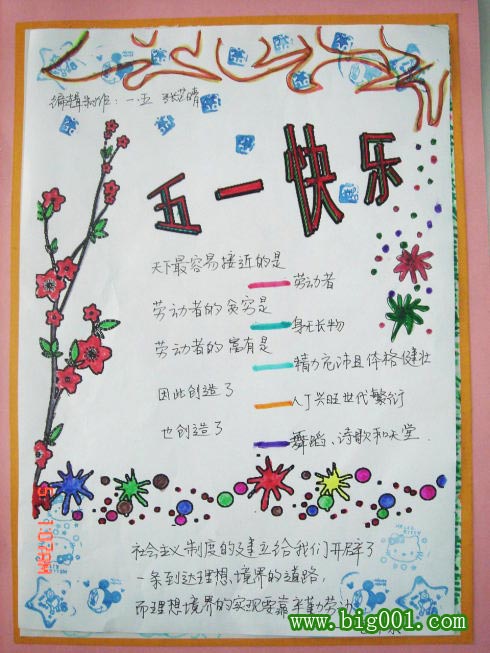 编辑制作：一.五 张艺晴
五一快乐
天下最容易接近的是
——劳动者
劳动者的贫穷是
——身无长物
劳动者的富有是
——精力充沛且体格健壮
因此创造了
——人丁兴旺世代繁衍
也创造了
——舞蹈、诗歌和天堂.
社会主义制度的建立给我们开辟了
一条到达理想境界的道路,
而理想境界的实现要靠辛勤劳动
HELLO KITTY
www.big001.com